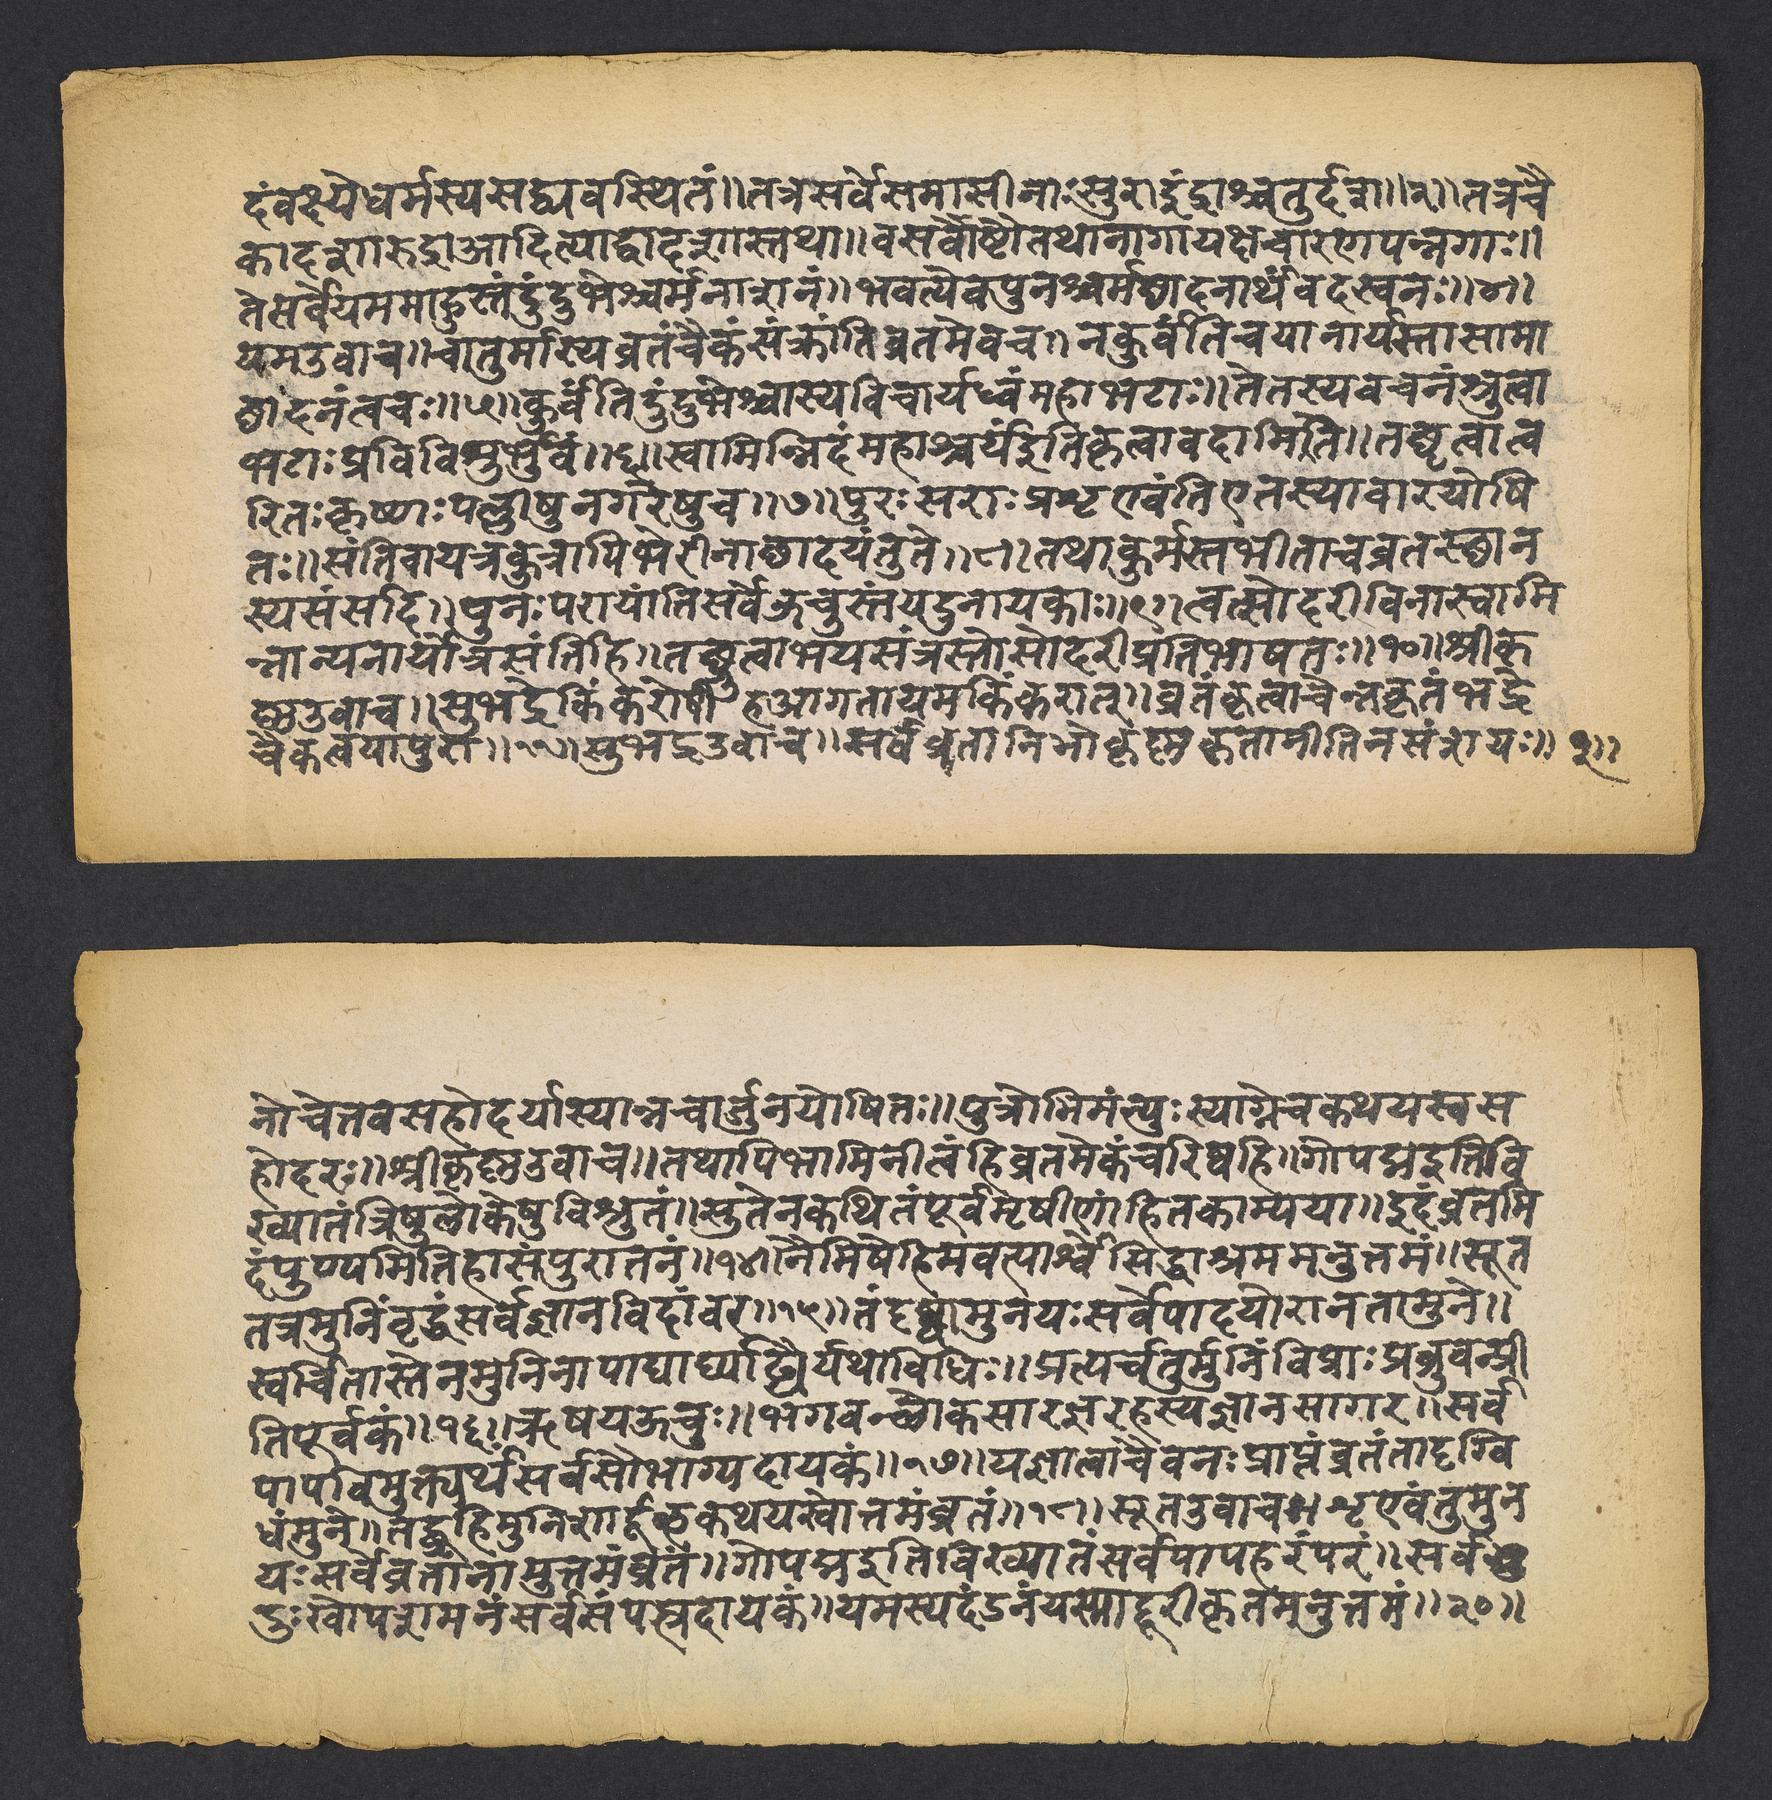 दंवक्ष्येधर्मस्यसद्यवस्थितं॥तत्रसर्वेसमासीनाःसुराइंद्राश्चतुर्दश॥२॥तत्रचै
कादशारुद्राआदित्याद्वादशास्तथा॥वसर्वोष्टौतथानागायक्षचारणपन्नगाः॥
तेसर्वेयममाहुस्तंदुंदुभेश्चर्मनाशनं॥भवत्येवपुनश्चर्मछादनार्थंवदस्वनः॥४॥
यमउवाच॥चातुर्मास्यव्रतंचैकंसंक्रांतिव्रतमेवच॥नकुर्वंतिचयानार्यस्तासामा
छादनंत्वचः॥५॥कुर्वंतिदुंदुभेश्चास्यविचार्यध्वंमहाभटाः॥तेतस्यवचनंश्रुत्वा
भटाःप्रविविशुर्भुवं॥६॥स्वामिन्निदंमहाश्चर्यंइतिकृत्वावदामिति॥तछृत्वात्व
रितःकृष्णःपल्लीषुनगरेषुच॥७॥पुरःसराःप्रशृण्वंतिएतस्यावारयोषि
तः॥संतिवायत्रकुत्रापिभेरीनाछादयंतुते॥८॥तथाकुर्मस्तभीताचव्रतस्छान
स्यसंसदि॥पुनःपरायांतिसर्वेऊचुस्तंयदुनायकाः॥९॥त्वत्सोदरीविनास्वामि
न्नान्यनार्योत्रसंतिहि॥तछ्रुत्वाभयसंत्रस्तोसोदरींप्रतिभाषतः॥१०॥श्रीकृ
ष्णउवाच॥सुभद्रेकिंकरोषीहआगतायमकिंकरात्॥व्रतंकृत्वाचेन्नकृतंभद्रे
चैकत्वयापुरा॥११॥सुभद्रउवाच॥सर्वव्रतानिभोकृष्णकृतानीतिनसंशयः॥१२॥
नोचेत्तवसहोदर्यास्यान्नचार्जुनयोषितः॥पुत्रोभिमंन्युःस्याग्नेचकथयस्वस
होदरः॥श्रीकृष्णउवाच॥तथापिभामिनीत्वंहिव्रतमेकंचरिष्वहि॥गोपद्मइतिवि
ख्यातंत्रिषुलोकेषुविश्रुतं॥सुतेनकथितंपूर्वमृषीणांहितकाम्यया॥इदंव्रतमि
दंपुण्यमितिहासंपुरातनं॥१४॥नैमिषेहिमवत्पार्श्वेसिद्धाश्रममनुत्तमं॥सूत
तत्रमुनिंवृद्धंसर्वज्ञानविदांवर॥१५॥तंदृष्ट्वामुनयःसर्वेपादयोरानतामुने॥
स्वर्चितास्तेनमुनिनापाद्यार्घ्याद्यैर्यथाविधिः॥प्रत्यर्चतुर्मुनिंविप्राःप्रब्रुवन्प्री
तिपूर्वकं॥१६॥ऋषयऊचुः॥भगवन्लोकसारज्ञरहस्यज्ञानसागर॥सर्व
पापविमुक्त्यर्थंसर्वसौभाग्यदायकं॥१७॥यज्ञात्वाचैवनःप्राप्तंव्रतंतादृग्वि
धंमुने॥तद्ब्रूहिमुनिशार्दूलकथयस्वोत्तमंव्रतं॥१८॥सूतउवाच॥शृण्वंतुमुन
यःसर्वेव्रतानामुत्तमंव्रतं॥गोपद्मइतिविख्यातंसर्वपापहरंपरं॥सर्व
दुःखोपशमनंसर्वसंपत्प्रदायकं॥यमस्यदंडनंयस्माद्दूरीकृतमनुत्तमं॥२०॥